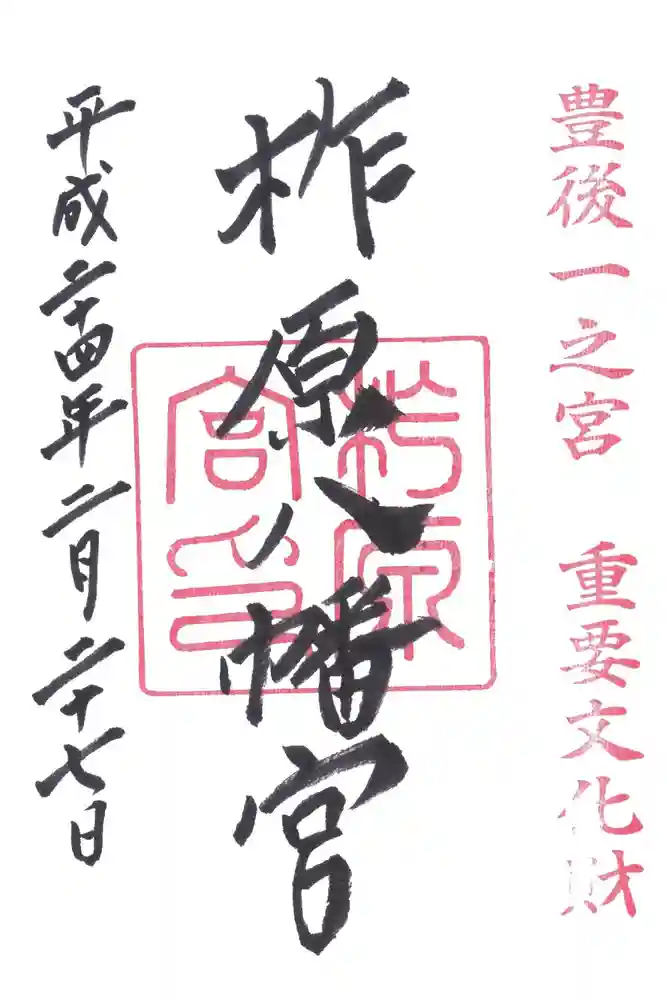 豊後一之宮 重要文化財
柞原八幡宮
柞原宮印
平成二十四年二月二十七日